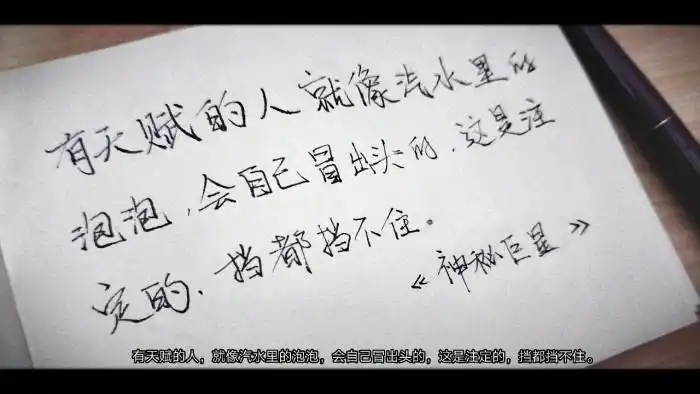 有天赋的人就像汽水里的
泡泡,会自己冒出头的,这是注
定的,挡都挡不住。
《神秘巨星》
有天赋的人，就像汽水里的泡泡，会自己冒出头的，这是注定的，挡都挡不住。